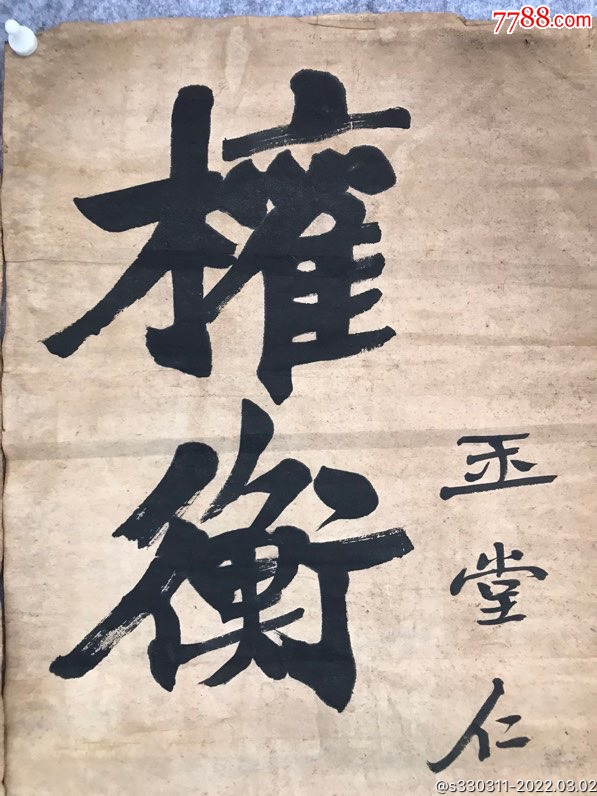 7788.com
玉堂仁
權衡
@s330311-2022.03.02